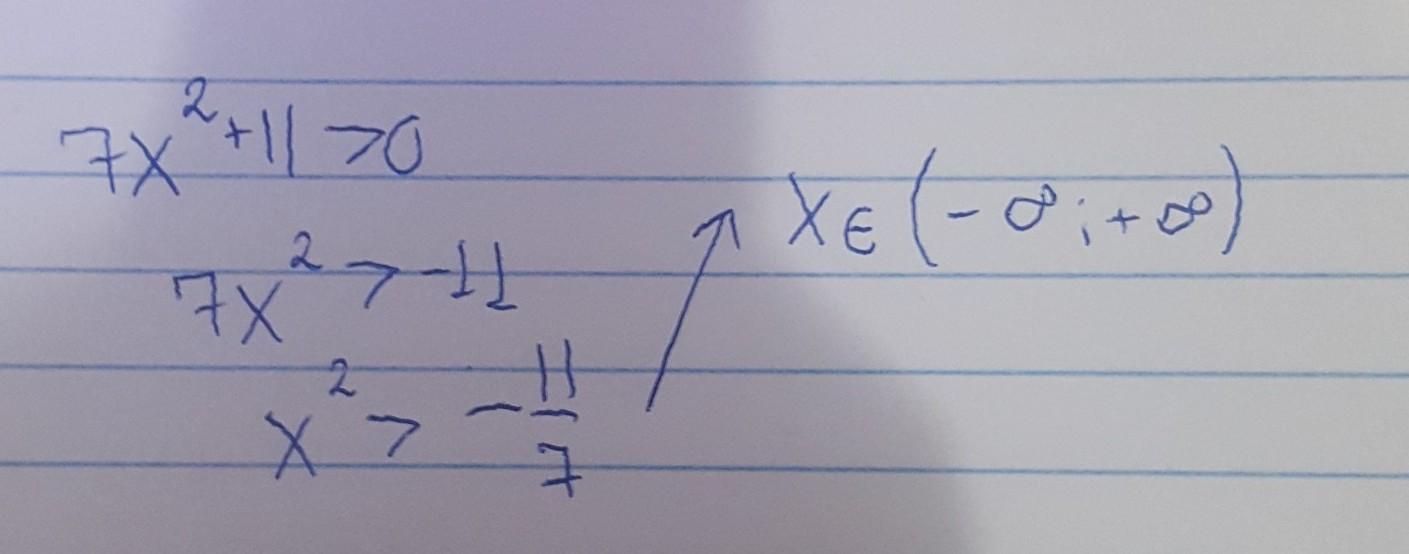 7x²+11>0
7x²>-11
x²>-11/7
x∈(-∞;+∞)